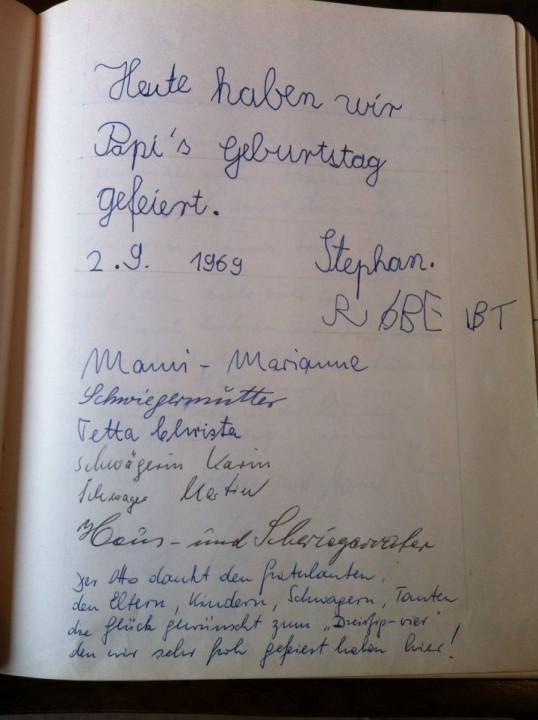 Heute haben wir
Papi's Geburtstag
gefeiert.
2.9. 1969 Stephan.
RÓBE BT
Mami - Marianne
Schwiegermütter
Tetta Christa
Schwägerin Karin
Schwager Martin
Haus- und Schwiegervater
Der Otto dankt den Gratulanten,
den Eltern, Kindern, Schwagern, Tanten
die Glück gewünscht zum „Dreißig-vier"
den wir sehr froh gefeiert haben hier!